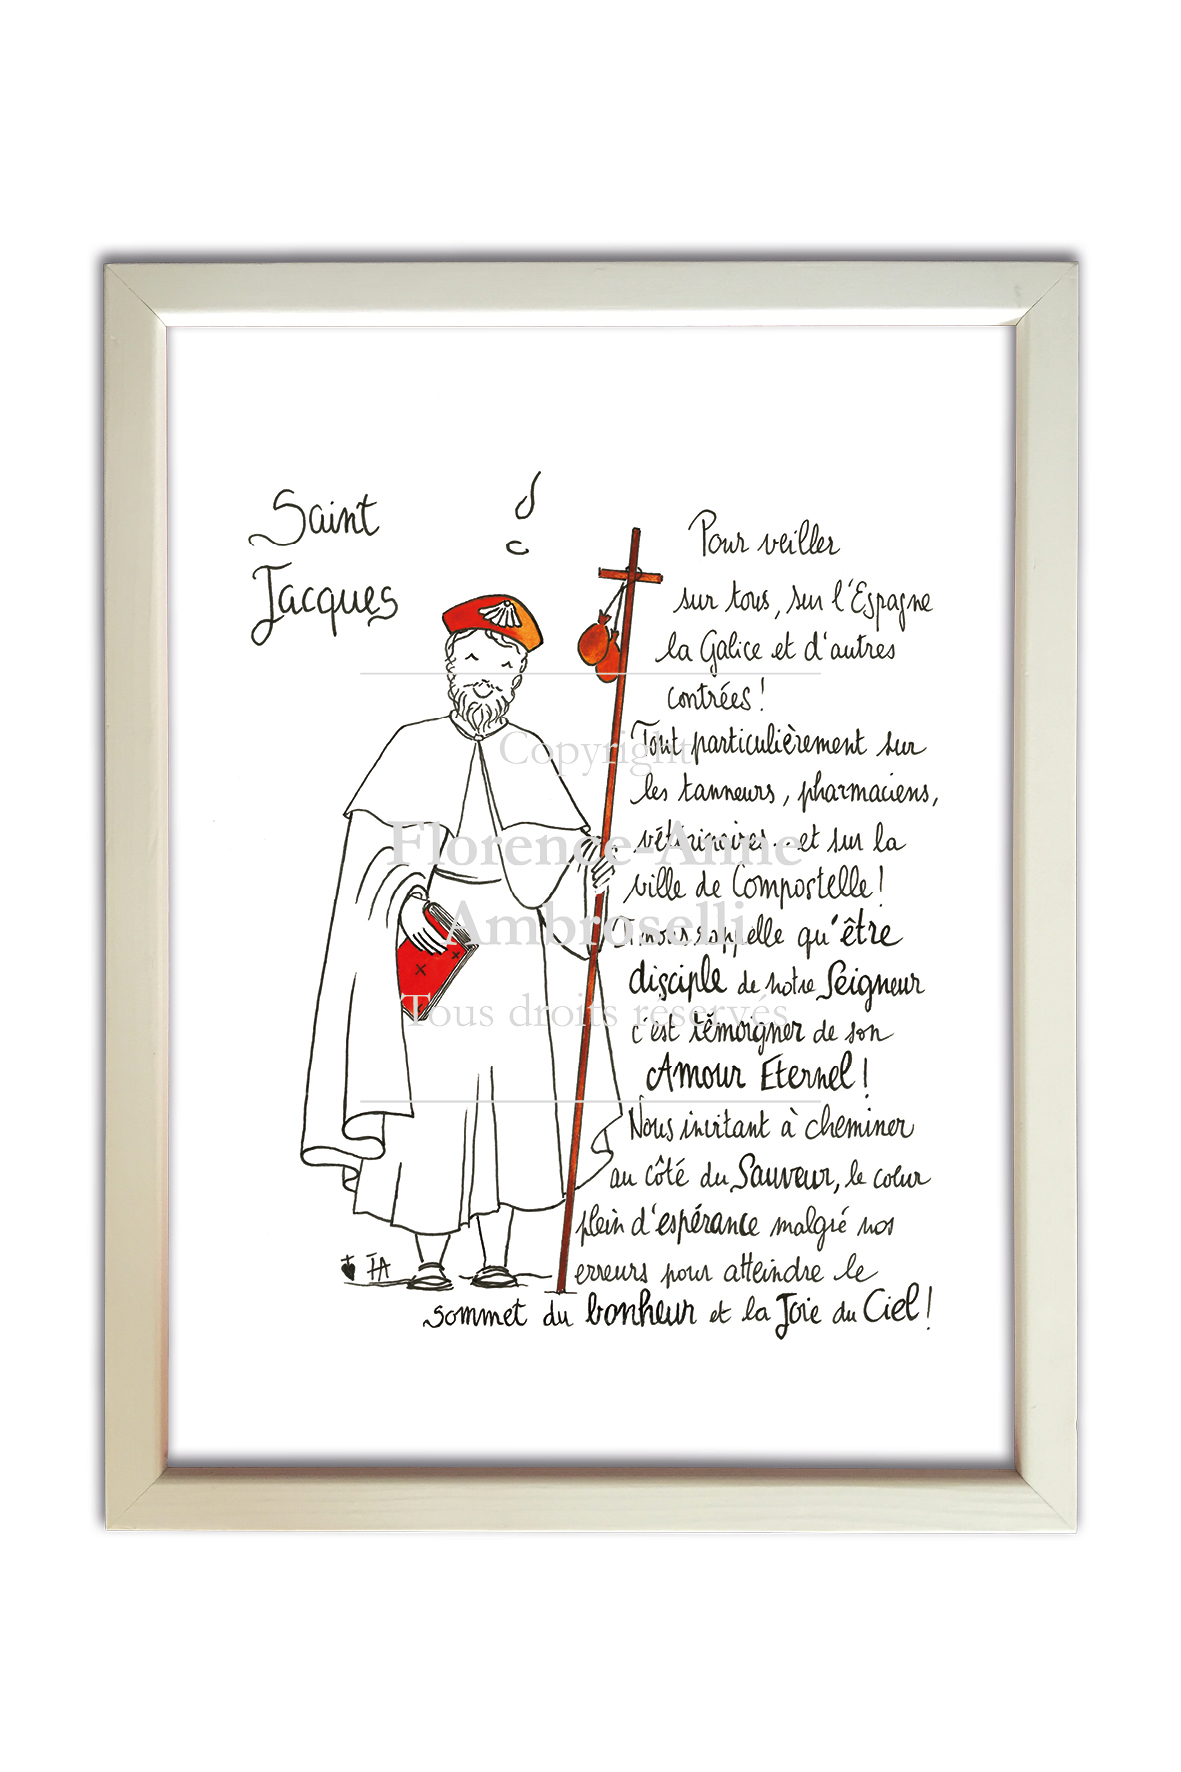 Saint
Jacques
Pour veiller
sur tous, sur l'Espagne
la Galice et d'autres
contrées !
Tout particulièrement sur
les tanneurs, pharmaciens,
vétérinaires... et sur la
ville de Compostelle !
Il nous rappelle qu'être
disciple de notre Seigneur
c'est témoigner de son
Amour Eternel !
Nous invitant à cheminer
au côté du Sauveur, le cœur
plein d'espérance malgré nos
erreurs pour atteindre le
sommet du bonheur et la Joie du Ciel !
FA
Copyright
Florence-Anne
Ambroselli
Tous droits réservés